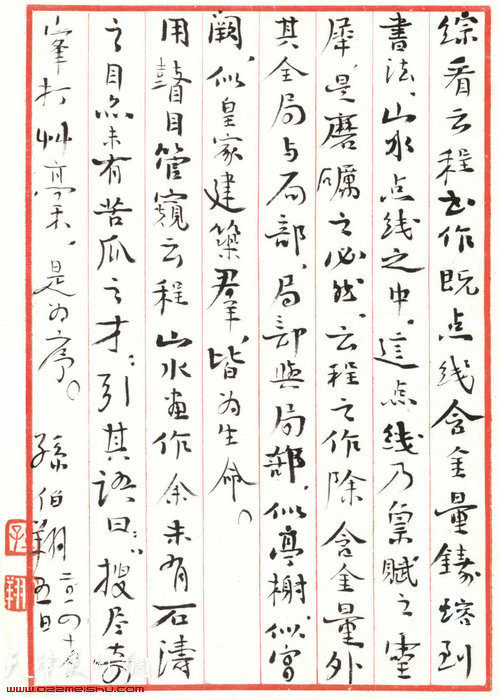 综看云程书作既点线含金量铸熔到
书法、山水点线之中，这点线乃禀赋之灵
犀，是磨礪之必然，云程之作除含金量外
其全局与局部，局部與局部，似亭榭，似宫
阙，似皇家建築群，皆为生命。
用瞽目管窥云程山水画作余未有石涛
之目点未有苦瓜之才，引其语曰：搜尽奇
峯打艸稾，是为序。
孫伯翔 二〇一四
五日
www.022meishu.com